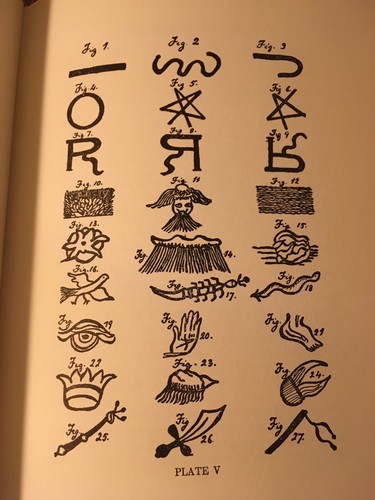 Fig 1. Fig. 2 Fig. 3
Fig 4. Fig. 5. Fig. 6.
Fig 7. Fig. 8. Fig 9.
Fig. 10. Fig. 11 Fig. 12
Fig. 13. Fig 14. Fig. 15.
Fig. 16. Fig. 17. Fig. 18
Fig. 19 Fig. 20. Fig. 21
Fig. 22 Fig. 23. Fig. 24.
Fig 25. Fig 26. Fig 27.
PLATE V